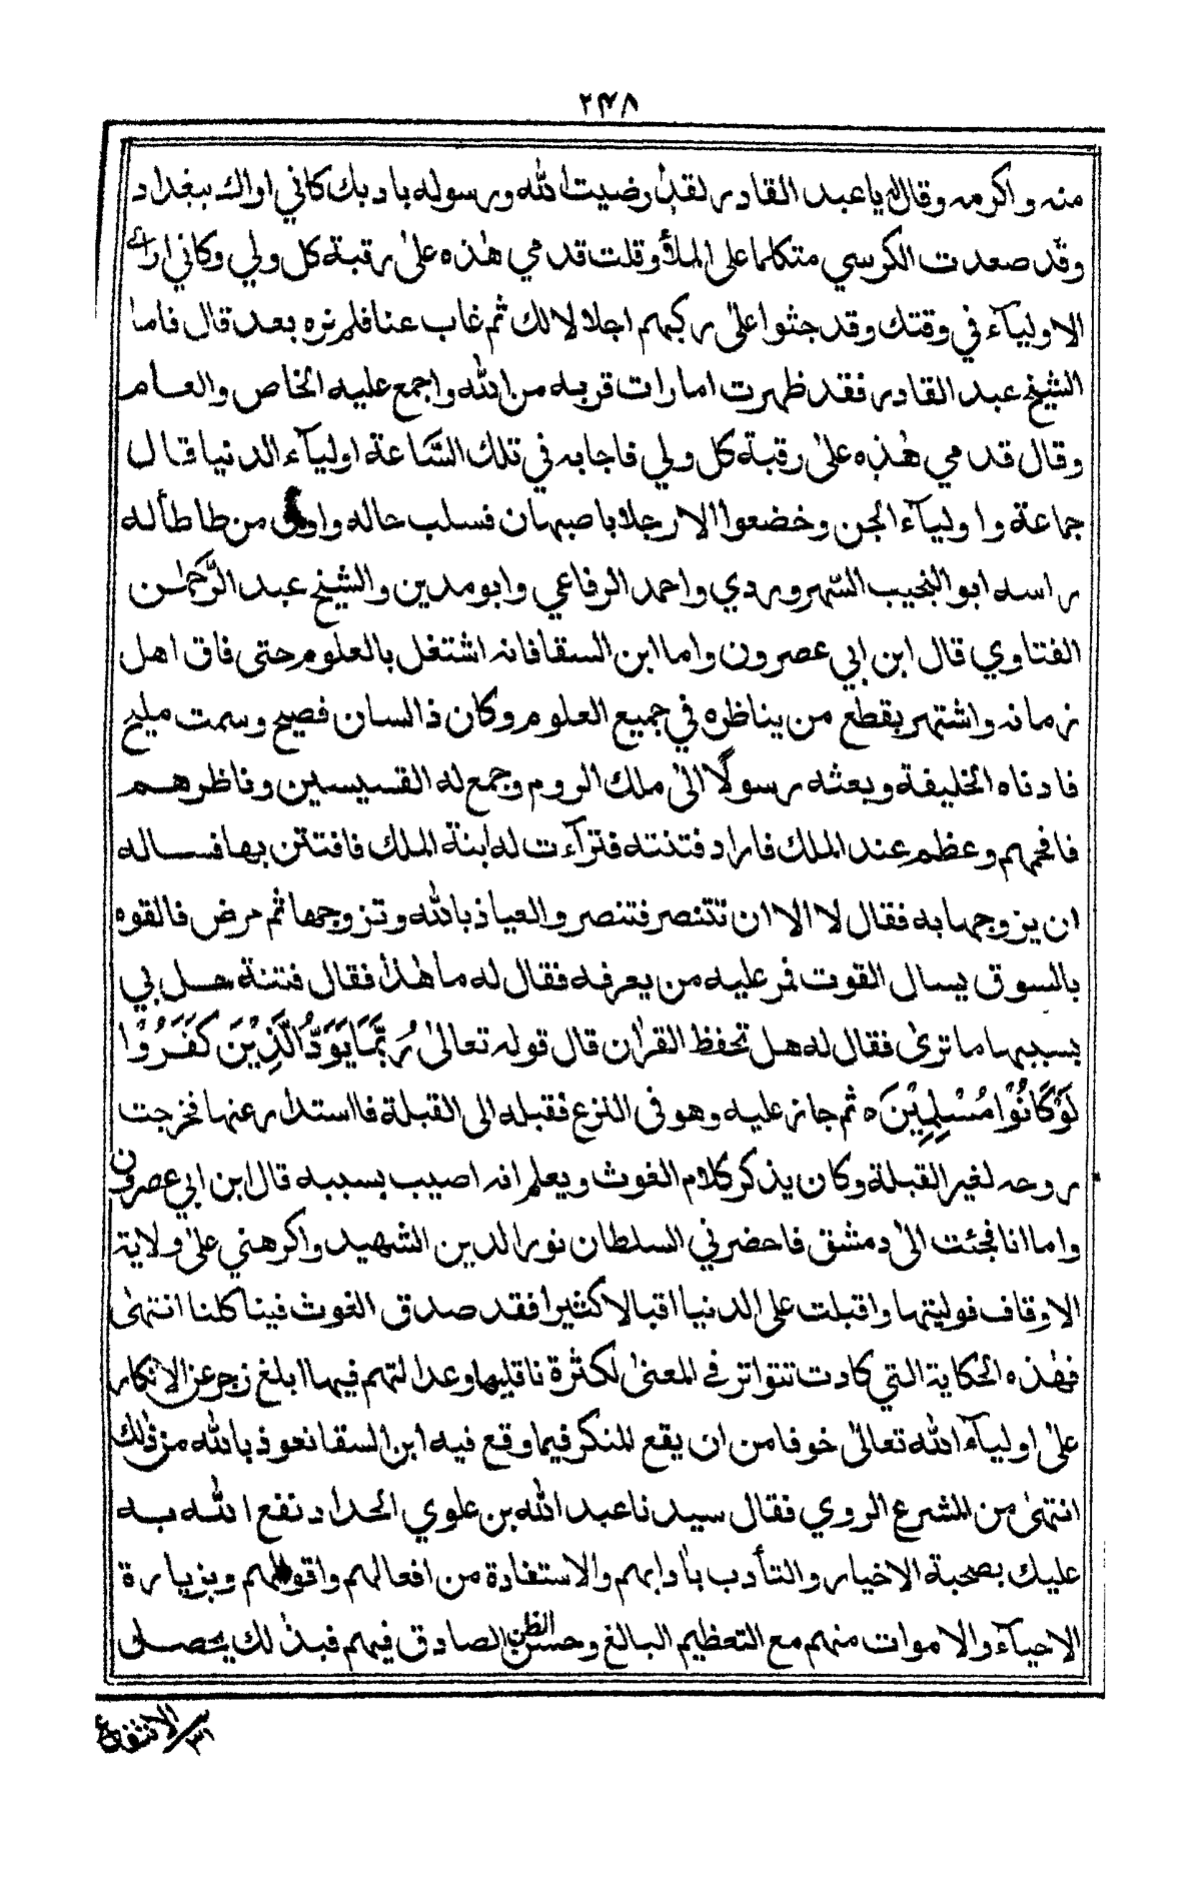 ٢٤٨
منه واكرمه وقال له يا عبد القادر لقد رضيت الله ورسوله بادبك كاني اراك ببغداد
وقد صعدت الكرسي متكلما على الملأ وقلت قدمي هٰذه علىٰ رقبة كل ولي وكاني ارى
الاوليآء في وقتك وقد جثوا علىٰ ركبهم اجلالا لك ثم غاب عنا فلم نره بعد قال فاما
الشيخ عبد القادر فقد ظهرت امارات قربه من الله واجمع عليه الخاص والعام
وقال قدمي هٰذه علىٰ رقبة كل ولي فاجابه في تلك السَّاعة اوليآء الدنيا قال
جماعة واوليآء الجن وخضعوا الا رجلا باصبهان فسلب حاله و من طاطأ له
راسه ابو النجيب السّهروردي واحمد الرفاعي وابو مدين والشيخ عبد الرَّحمٰن
الفتاوي قال ابن ابي عصرون واما ابن السقا فانه اشتغل بالعلوم حتى فاق اهل
زمانه واشتهر بقطع من يناظره في جميع العلوم وكان ذا لسان فصيح وسمت مليح
فادناه الخليفة وبعثه رسولًا الىٰ ملك الروم وجمع له القسيسين وناظرهم
فافحمهم وعظم عند الملك فاراد فتنته فترآءت له ابنة الملك فافتتن بها فساله
ان يزوجها به فقال لا الا ان تتنصر فتنصر والعياذ بالله وتزوجها ثم مرض فالقوه
بالسوق يسال القوت فمر عليه من يعرفه فقال له ما هٰذا فقال فتنة حل بي
بسببها ما ترىٰ فقال له هل تحفظ القرآن قال قوله تعالىٰ رُبَّمَا يَوَدُّ الَّذِيْنَ كَفَرُوْا
لَوْ كَانُوْا مُسْلِمِيْنَ ه ثم جاز عليه وهو فى النزع فقبله الى القبلة فاستدار عنها فخرجت
روحه لغير القبلة وكان يذكر كلام الغوث ويعلم انه اصيب بسببه قال ابن ابي عصرون
واما انا فجئت الىٰ دمشق فاحضرني السلطان نور الدين الشهيد واكرهني علىٰ ولاية
الاوقاف فوليتها واقبلت على الدنيا اقبالا كثيرا فقد صدق الغوث فينا كلنا انتهىٰ
فهٰذه الحكاية التي كادت تتواتر في المعنىٰ لكثرة ناقليها وعدالتهم فيها ابلغ زجر عن الانكار
علىٰ اوليآء الله تعالىٰ خوفا من ان يقع المنكر فيما وقع فيه ابن السقا نعوذ بالله من ذلك
انتهىٰ من المشرع الروي فقال سيدنا عبد الله بن علوي الحداد نفع الله به
عليك بصحبة الاخيار والتأدب بآدابهم والاستفادة من افعالهم واقوالهم وبزيارة
الاحيآء والاموات منهم مع التعظيم البالغ وحسن الظن الصادق فيهم فبذلك يحصل
الانتفاع
٣١